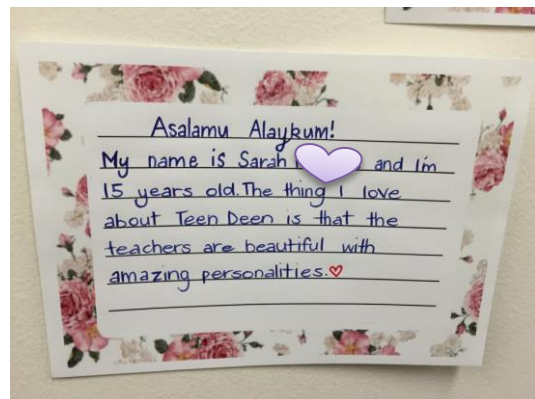 Asalamu Alaykum!
My name is Sarah and I'm
15 years old. The thing I love
about Teen Deen is that the
teachers are beautiful with
amazing personalities.